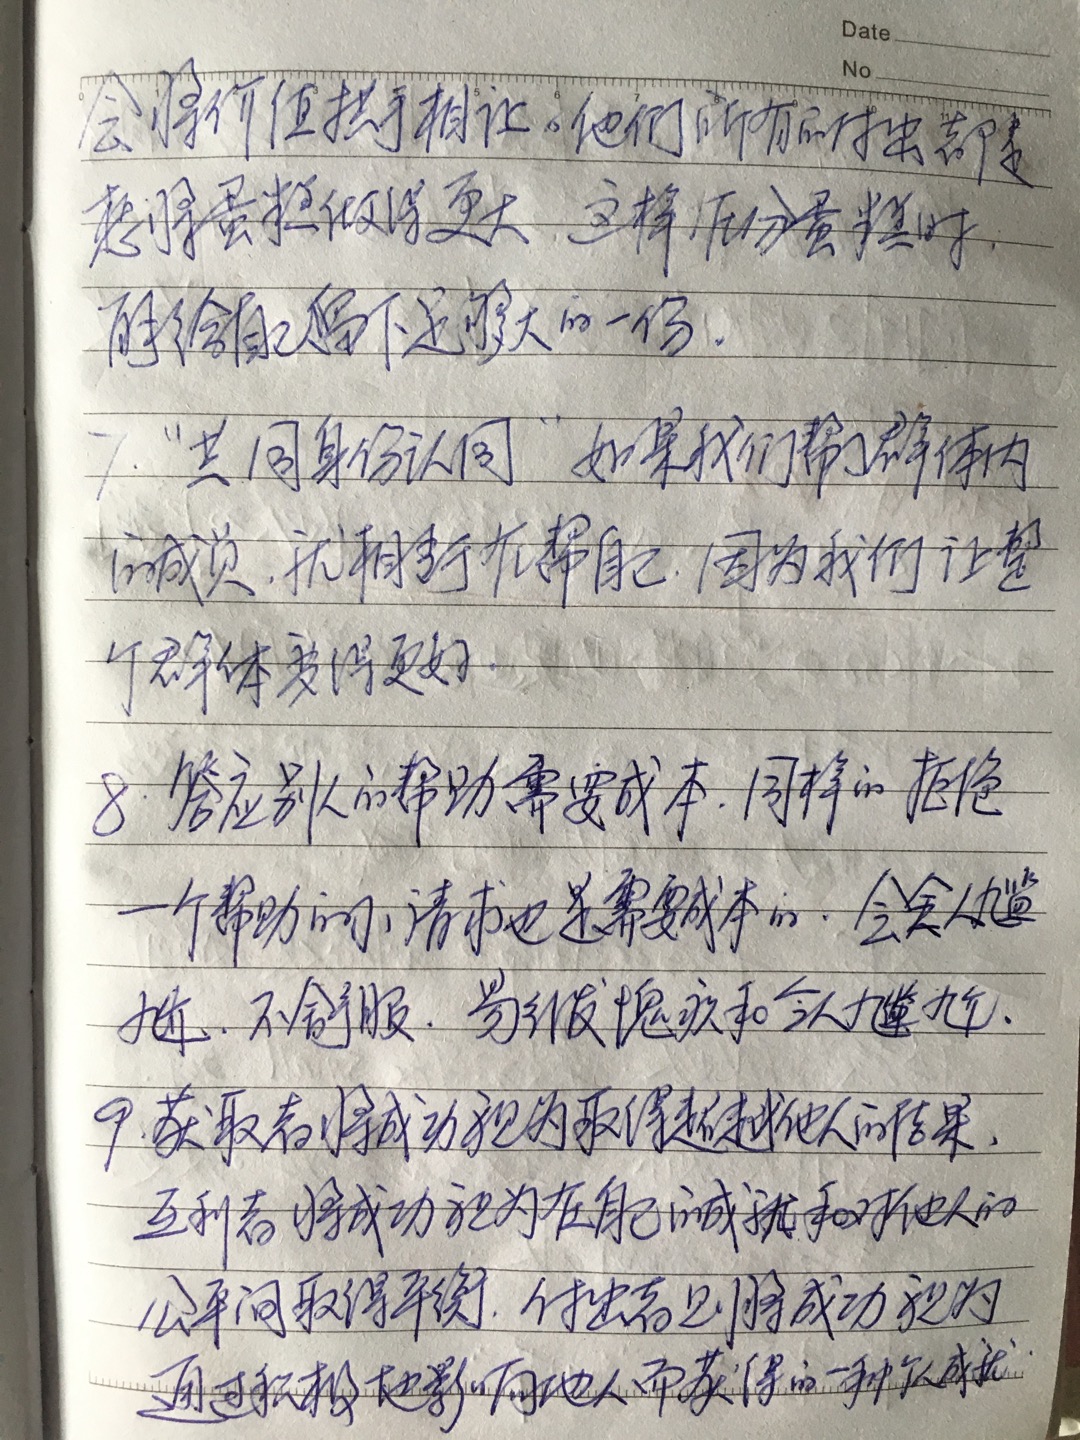 Date
No
会将价值拱手相让。他们所有的付出都是
想将蛋糕做得更大 这样在分蛋糕时,
能给自己留下足够大的一份.
7."共同身份认同"如果我们帮群体内
的成员,就相当于在帮自己.因为我们让整
个群体变得更好.
8.答应别人的帮助需要成本.同样的 拒绝
一个帮助的小请求也是需要成本的.会令人尴
尬.不舒服.易引发愧疚和令人尴尬.
9.获取者将成功视为取得超越他人的结果,
互利者将成功视为在自己的成就和对他人的
公平间取得平衡.付出者则将成功视为
通过积极地影响他人而获得的一种个人成就